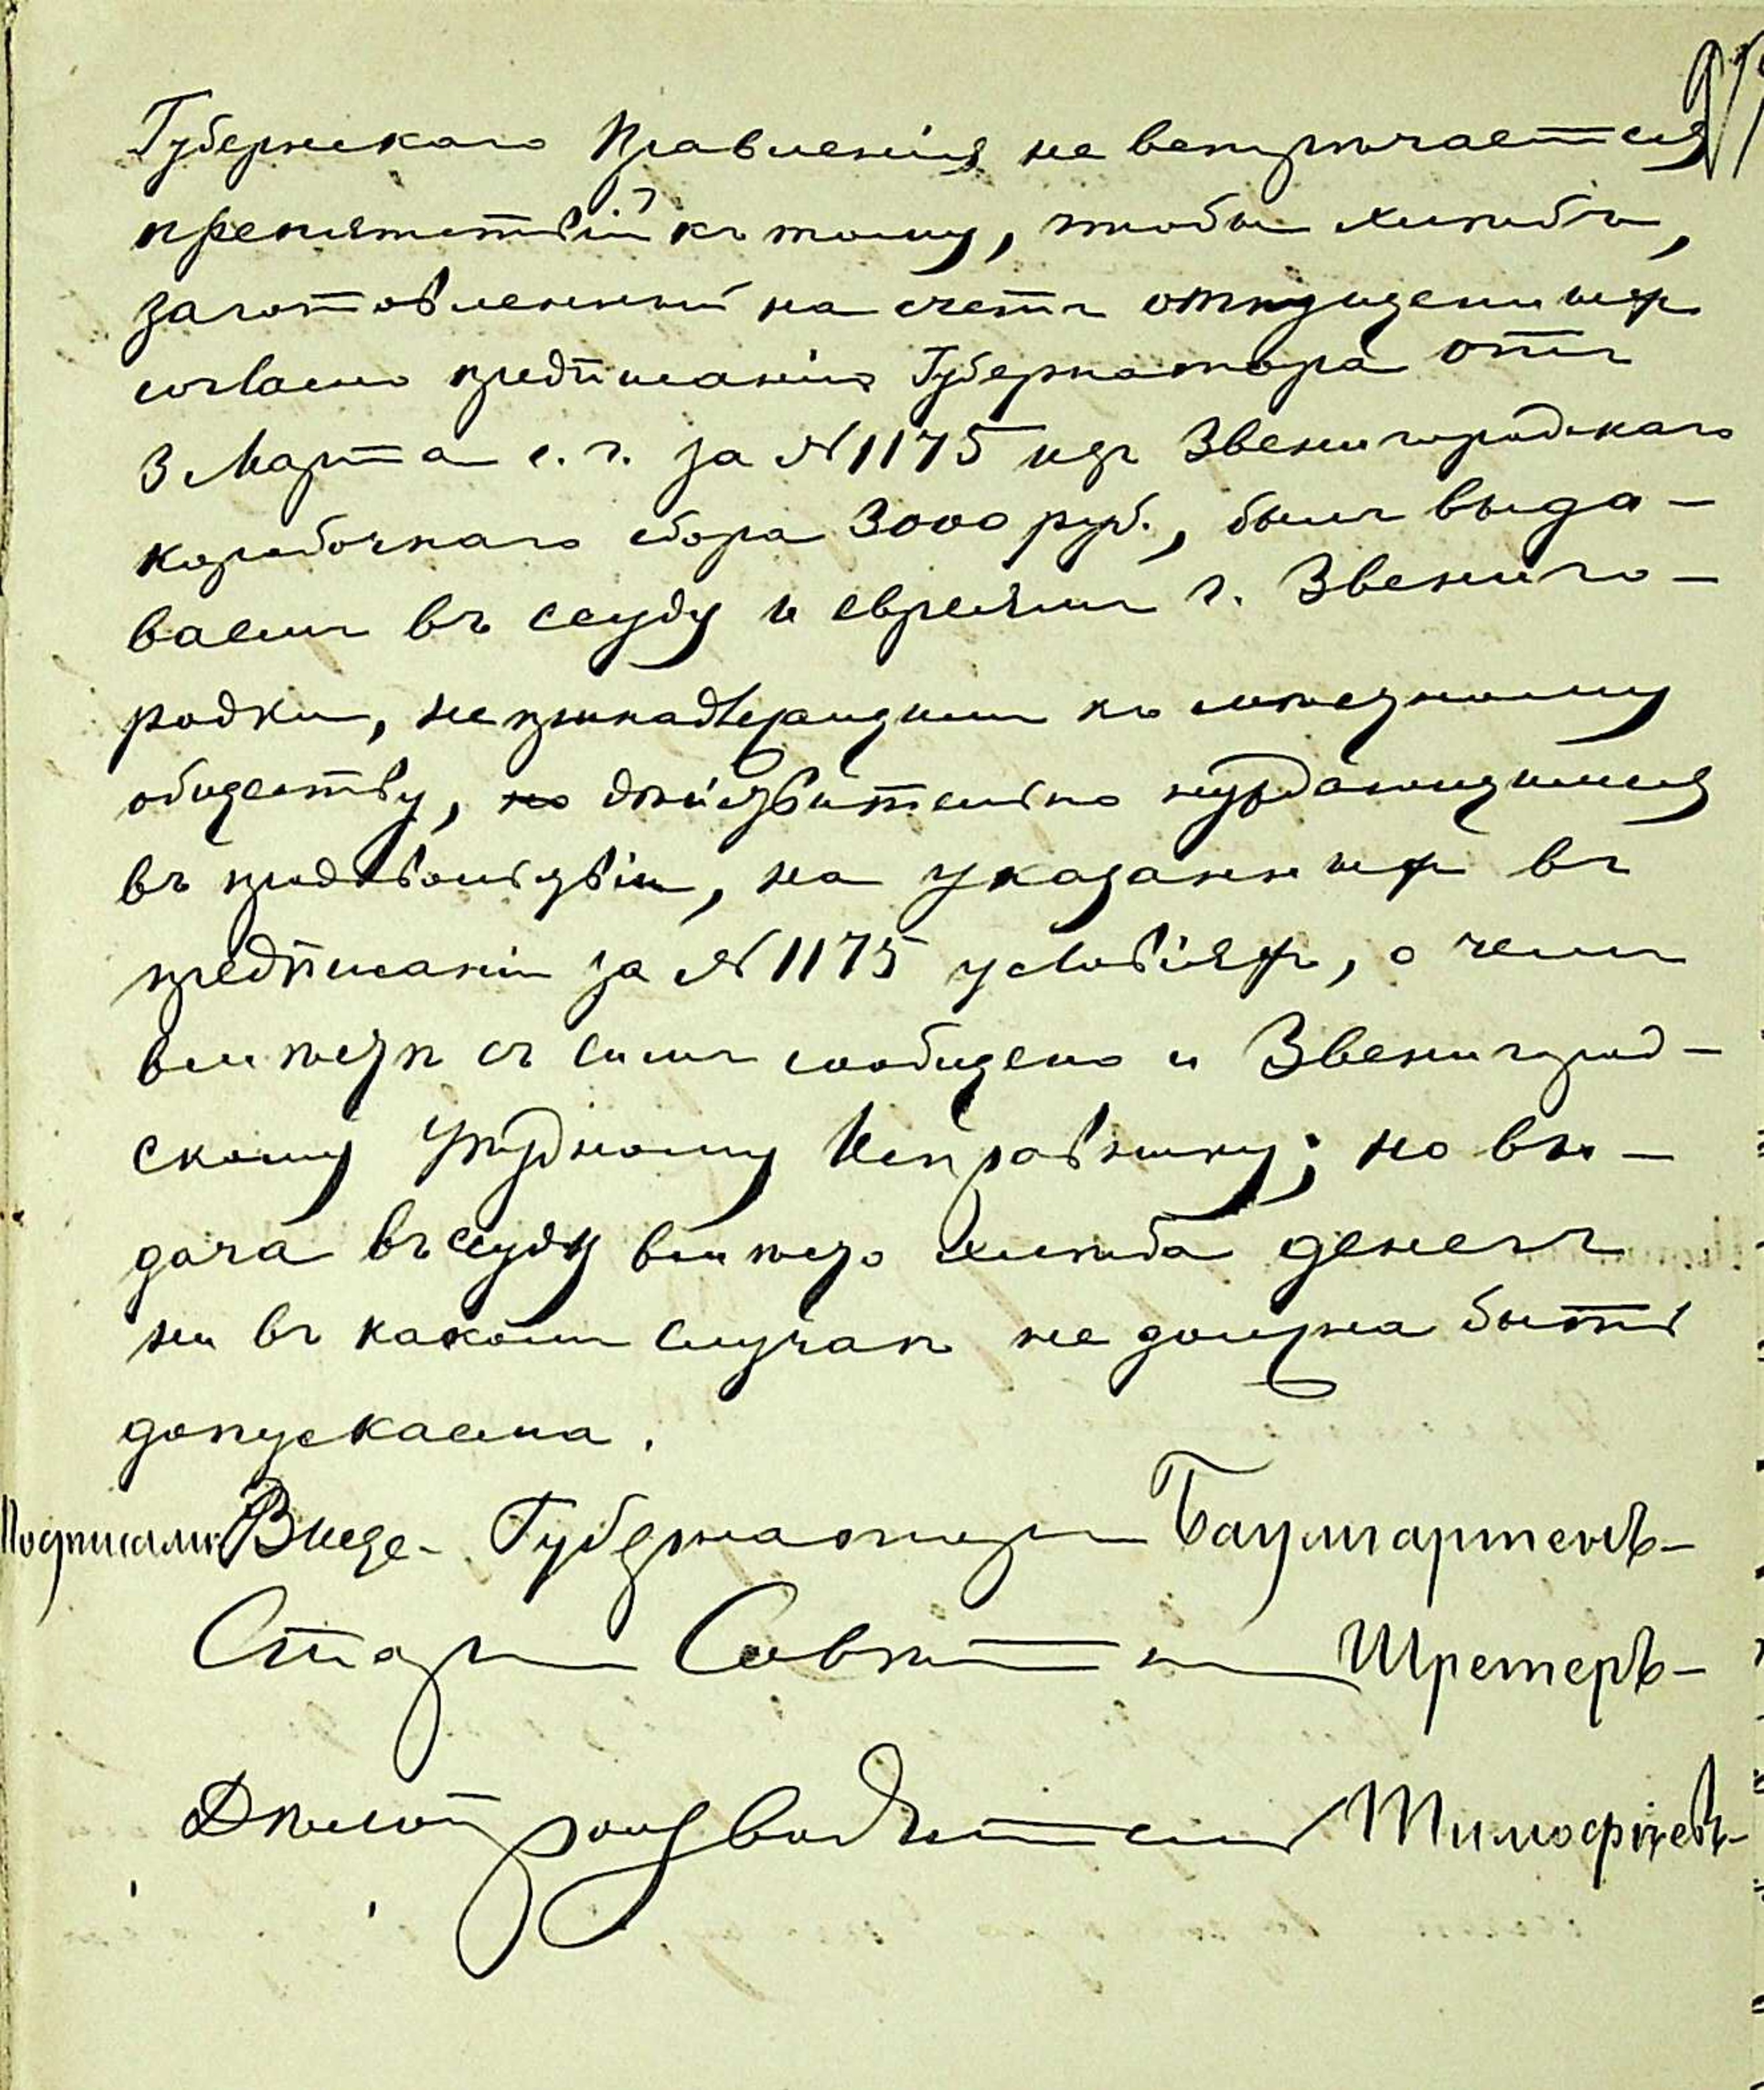 Губернскаго Правленія не встрѣчается
препятствій къ тому, чтобы хлѣбъ,
заготовленный на счетъ отпущенныхъ
согласно предписанію Губернатора отъ
3 Марта с. г. за № 1175 изъ Звенигородскаго
коробочнаго сбора 3000 руб., былъ выда-
ваемъ въ ссуду и евреямъ г. Звениго-
родки, непринадлежащимъ къ мѣстному
обществу, но дѣйствительно нуждающимся
въ продовольствіи, на указанныхъ въ
предписаніи за № 1175 условіяхъ, о чемъ
вмѣстѣ съ симъ сообщено и Звенигород-
скому Уѣздному Исправнику; но вы-
дача въ ссуду вмѣсто хлѣба денегъ
ни въ какомъ случаѣ не должна быть
допускаема.
Подписали: Вице-Губернаторъ Баумгартенъ-
Старш. Совѣтникъ Шретеръ-
Дѣлопроизводитель Тимофѣевъ-